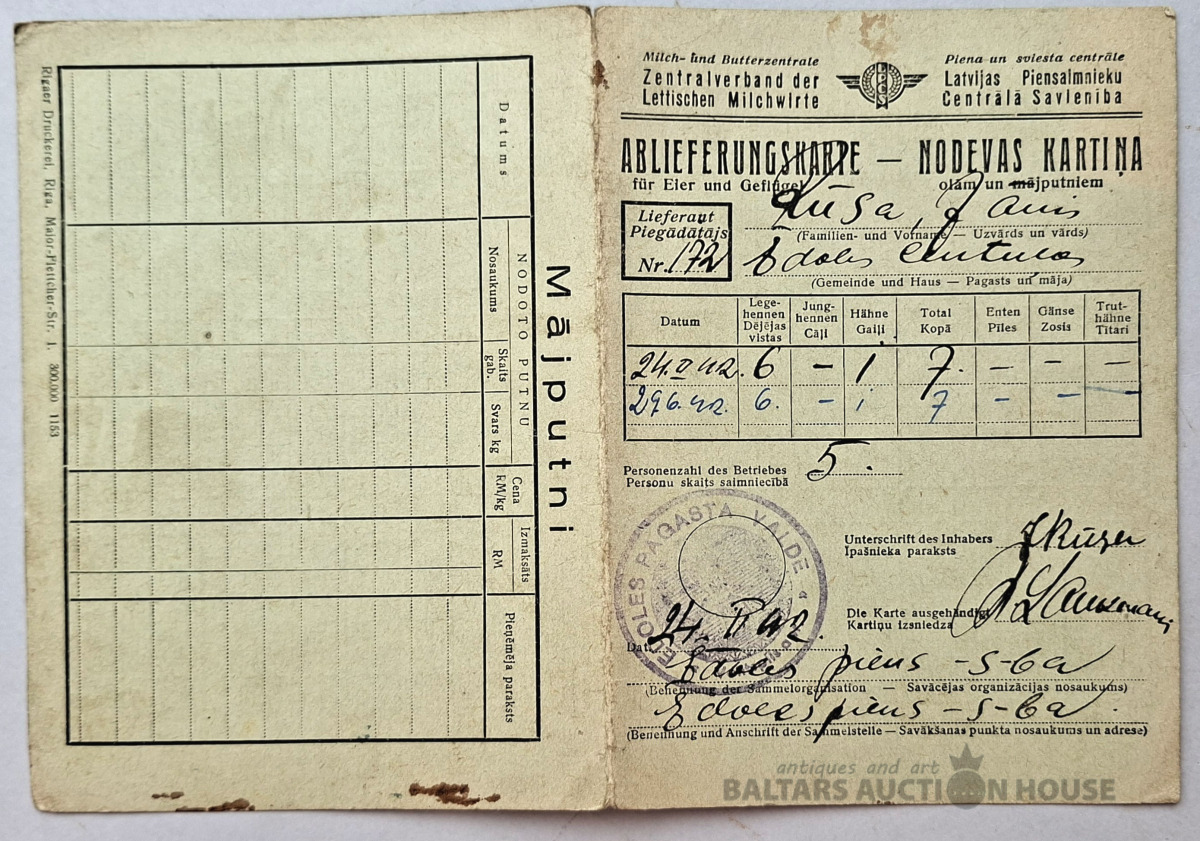 Rigaer Druckerei, Riga, Major-Plettcher-Str. 1. 300.000 1153
Mājputni
Datums
NODOTO PUTNU
Nosaukums
Skaits gab.
Svars kg
Cena RM/kg
Izmaksāts
RM
Pieņēmēja paraksts
Milch- und Butterzentrale
Zentralverband der
Lettischen Milchwirte
Piena un sviesta centrāle
Latvijas Piensaimnieku
Centrālā Savienība
LPCS
ABLIEFERUNGSKARTE — NODEVAS KARTIŅA
für Eier und Geflügel olām un mājputniem
Jānis
Lieferant
Piegādātājs
Nr. 172
(Familien- und Vorname — Uzvārds un vārds)
Edoles
(Gemeinde und Haus — Pagasts un māja)
Datum Lege-hennen Dējējas vistas Jung-hennen Cāļi Hähne Gaiļi Total Kopā Enten Pīles Gänse Zosis Trut-hähne Tītari
24.II 42. 6 — 1 7. — — —
29 6. 42. 6. — 1 7 — — —
Personenzahl des Betriebes
Personu skaits saimniecībā
5.
EDOLES PAGASTA VALDE
Unterschrift des Inhabers
Īpašnieka paraksts
Die Karte ausgehändigt
Kartiņu izsniedza
Dat. 24. II 42.
Edoles piens-s-ba
(Benennung der Sammelorganisation — Savācējas organizācijas nosaukums)
Edoles piens-s-ba.
(Benennung und Anschrift der Sammelstelle — Savākšanas punkta nosaukums un adrese)
antiques and art
BALTARS AUCTION HOUSE